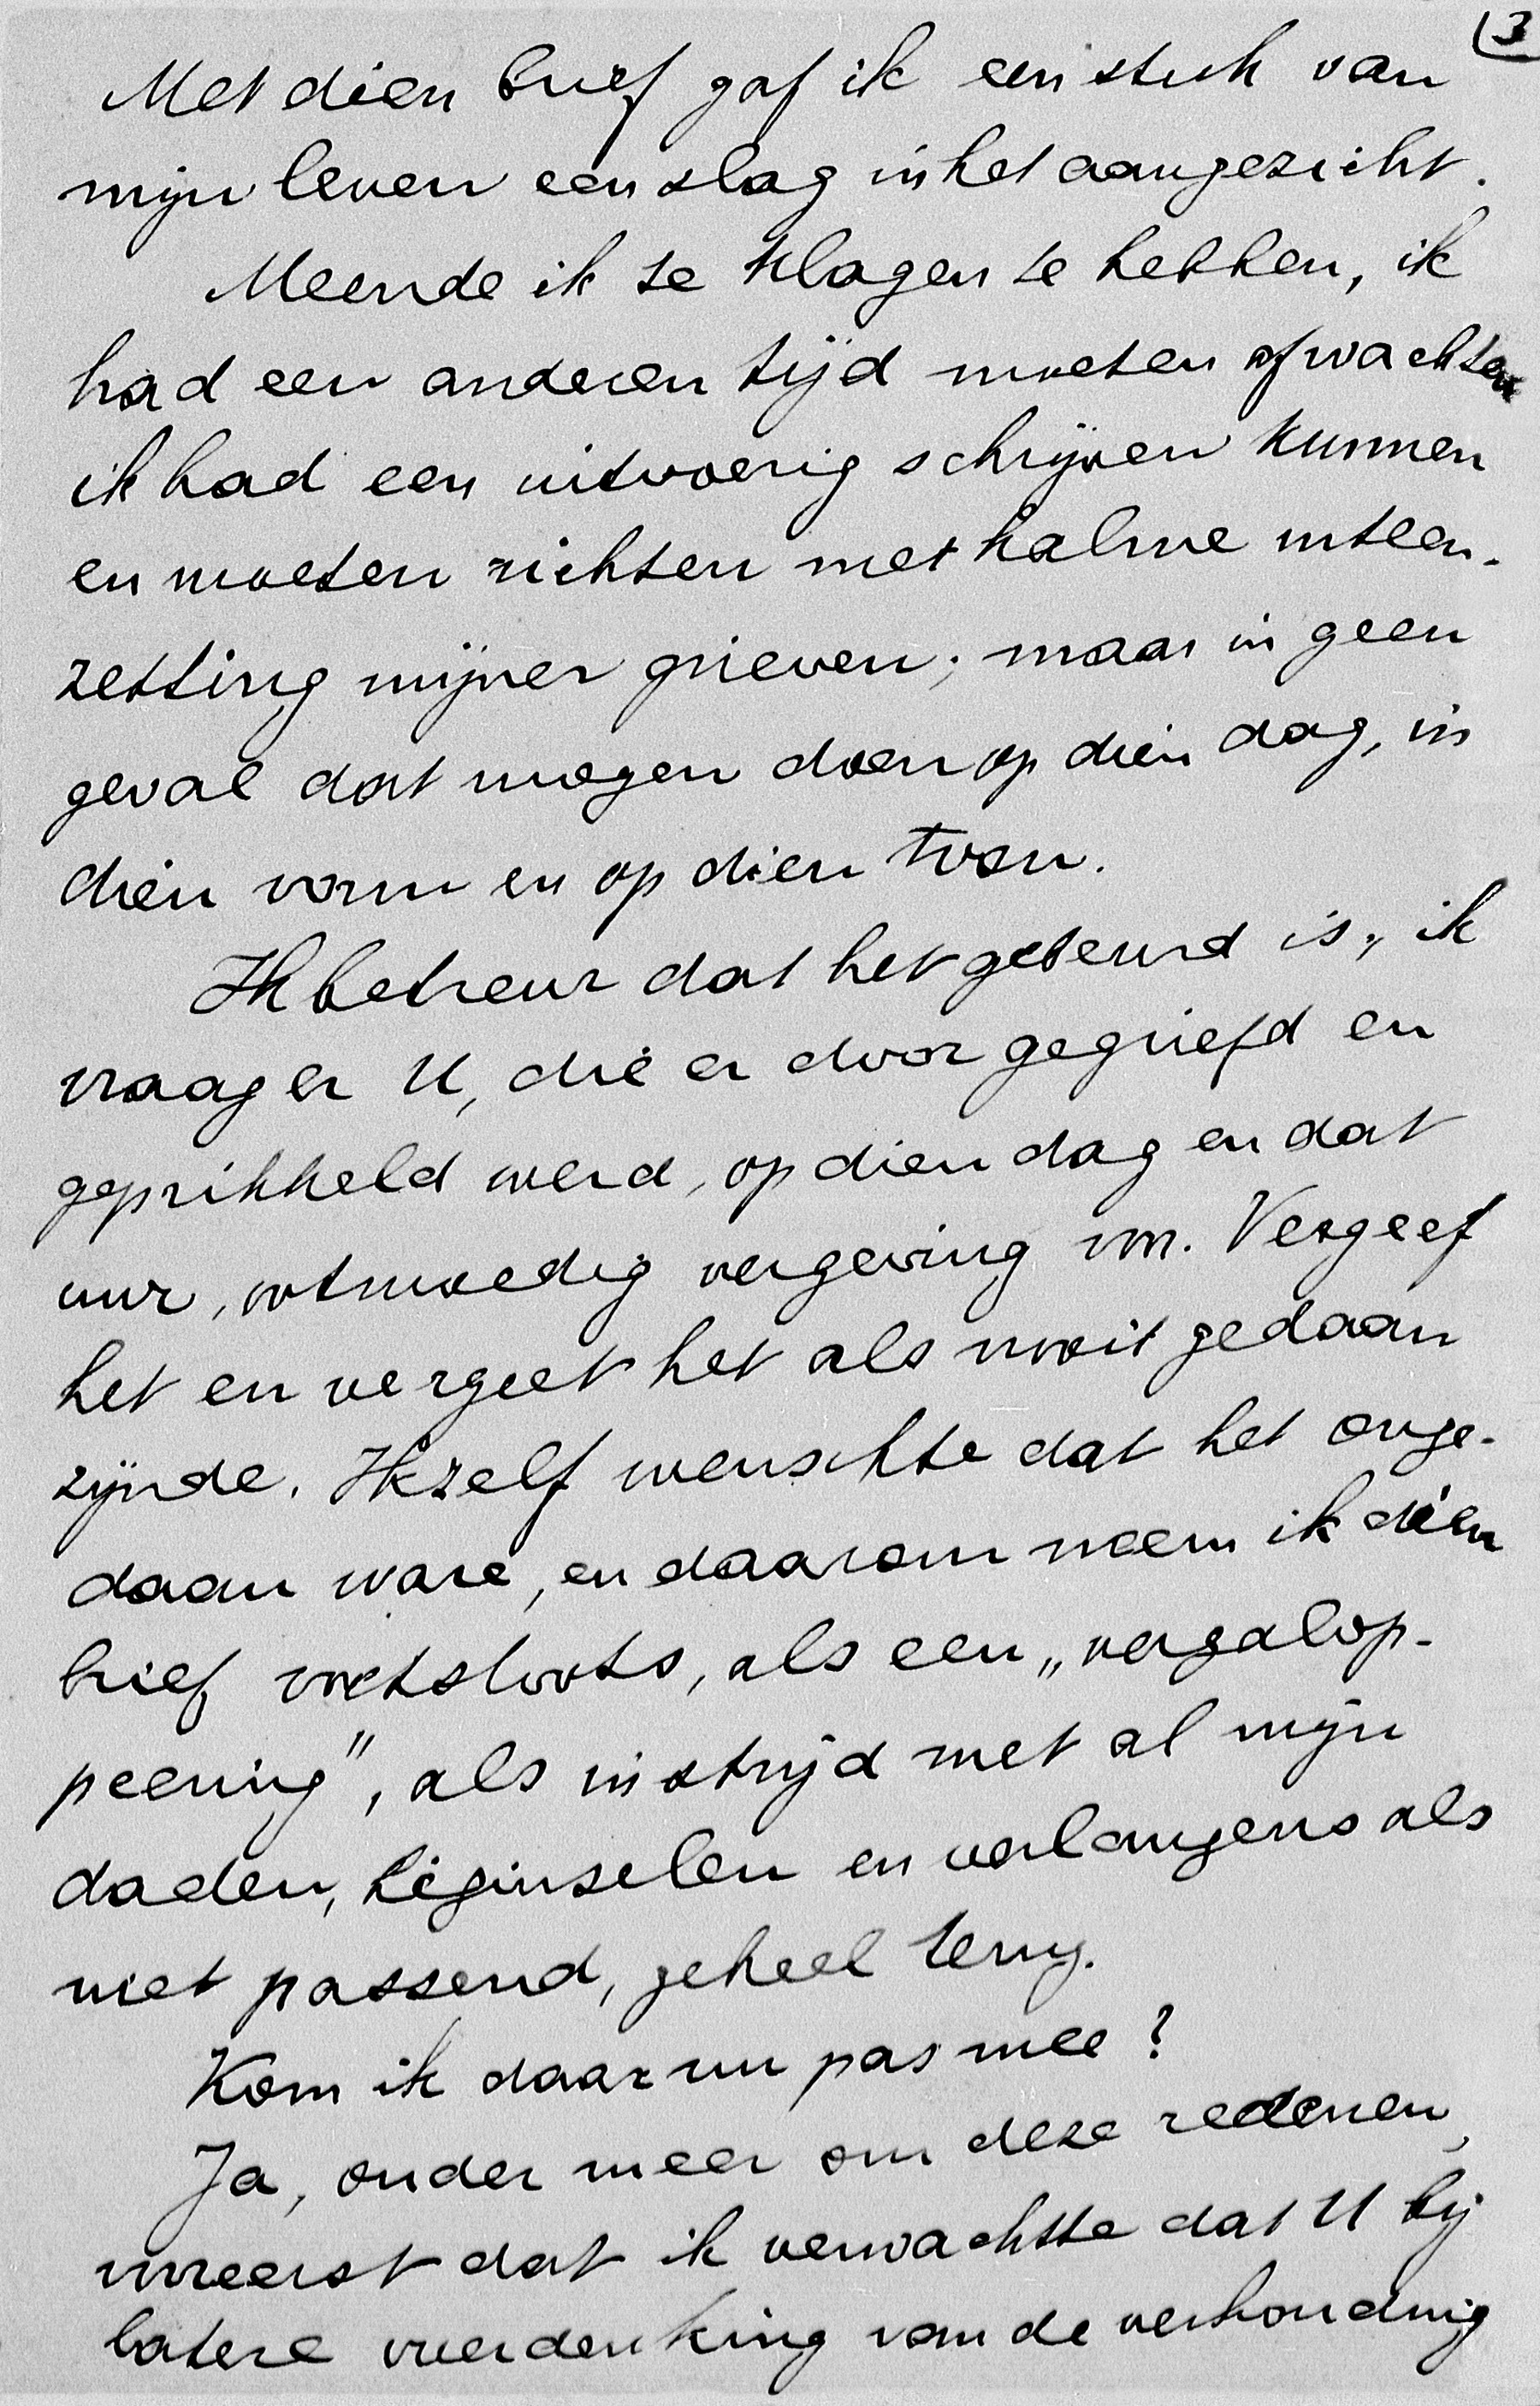 3
Met dien brief gaf ik een stuk van
mijn leven een slag in het aangezicht.
Meende ik te klagen te hebben, ik
had een anderen tijd moeten afwachten
ik had een uitvoerig schrijven kunnen
en moeten richten met kalme uiteen-
zetting mijner grieven; maar in geen
geval dat mogen doen op dien dag, in
dien vorm en op dien toon.
Ik betreur dat het gebeurd is, ik
vraag er U, die er door gegriefd en
geprikkeld werd, op dien dag en dat
uur, ootmoedig vergeving voor. Vergeef
het en vergeet het als nooit gedaan
zijnde. Ikzelf wenschte dat het onge-
daan ware, en daarom neem ik dien
brief voetstoots, als een „vergalop-
peering”, als in strijd met al mijn
daden, beginselen en verlangens als
niet passend, geheel terug.
Kom ik daar nu pas mee?
Ja, onder meer om deze redenen,
vooreerst dat ik verwachtte dat U bij
latere overdenking van de verhouding